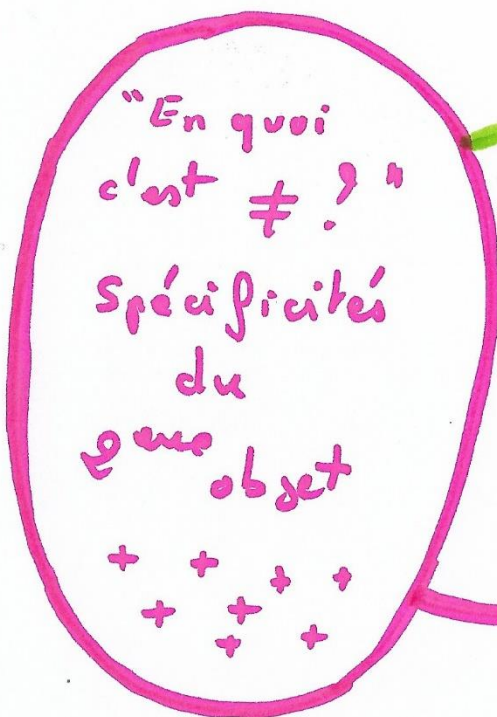 "En quoi
c'est ≠ ?"
Spécificités
du
2ème objet
+ + + +
+ + +
+ +